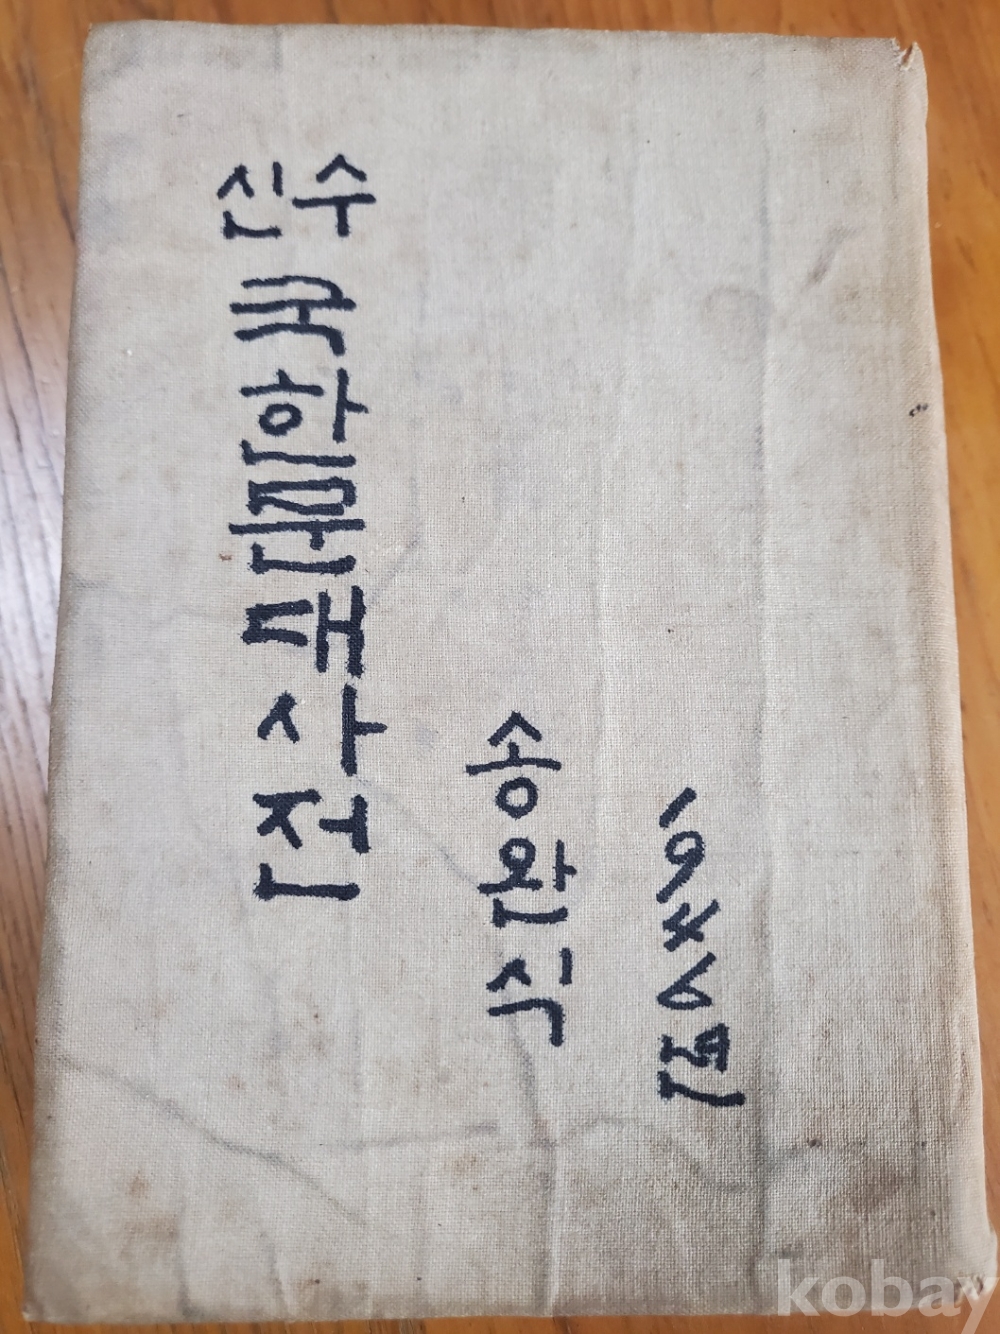 신수
국한문대사전
송완식
1946년
kobay